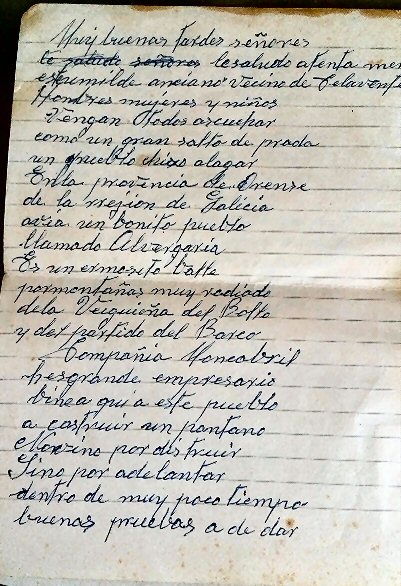 Muy buenas tardes señores
te saludo señores le saludo atenta men
este umilde anciano vecino de Celavente
Hombres mujeres y niños
Vengan Otodos ascuchar
como un gran salto de prada
un pueblo hizo alagar
En la provincia de Orense
de la rrejion de Galicia
avia un bonito pueblo
llamado Alvergaria
Es un ermosito balle
pormontañas muy rodiado
dela Veiguiña del Bollo
y del partido del Barco
Compañia Moncabril
hesgrande empresario
bino aqui a este pueblo
a costruir un pantano
No vino por distruir
Sino por adelantar
dentro de muy poco tiempo
buenas pruebas a de dar